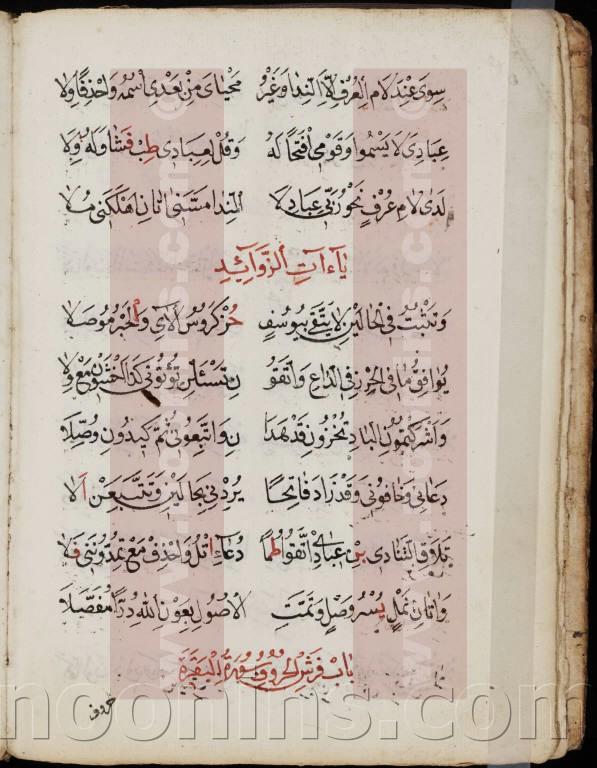 سِوَى عِنْدَ لَامِ الْعُرْفِ إِلَّا النِّدَا وَغَيْرُ مَحْيَايَ مِنْ بَعْدِي اسْمُهُ وَاحْذِفًا وِلَا
عِبَادِيَ لَا يَسْمُوا وَقَوْمِي افْتَحًا لَهُ وَقُلْ لِعِبَادِي طِبْ فَشَا وَلَهُ وِلَا
لَدَى لَامِ عُرْفٍ نَحْوُ رَبِّي عِبَادِ لَا النِّدَا مَسَّنِي آتَانِ أَهْلَكَنِي مُلَا
يَاءَاتِ الزَّوَائِدِ
وَتَثْبُتُ فِي الْحَالَيْنِ لَا يَتَّقِي بِيُوسُفٍ حُزْ كَرُوسُ الْآيِ وَالْحَبْرُ مُوصِلَا
يُوَافِقُ مَا فِي الْحِرْزِ فِي الدَّاعِ وَاتَّقُو نِ تَسْئَلْنِ تُؤْتُونِي كَذَا اخْشَوْنِ مَعْ وَلَا
وَأَشْرَكْتُمُونِ الْبَادِ تُخْزُونِ قَدْ هَدَا نِ وَاتَّبِعُونِي ثُمَّ كِيدُونِ وُصِّلَا
دَعَانِي وَخَافُونِي وَقَدْ زَادَ فَاتِحًا يُرِدْنِي بِحَالَيْنِ وَتَتَّبِعَنْ أَلَا
تَلَاقِ التَّنَادِي بِنْ عِبَادِي اتَّقُوا طُمَا دُعَاءِ اتْلُ وَاحْذِفْ مَعْ تُمِدُّونَنِي فُلَا
وَآتَانِ نَمْلٍ يُسْرُ وَصْلٍ وَتَمَّتِ الْأُصُولُ بِعَوْنِ اللهِ دُرًّا مُفَصَّلَا
بَابُ فَرْشِ الْحُرُوفِ سُورَةُ الْبَقَرَةِ
حروف
noorlins.com